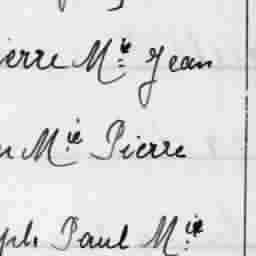 ierre Mie Jean
n Mie Pierre
ph Paul Mie